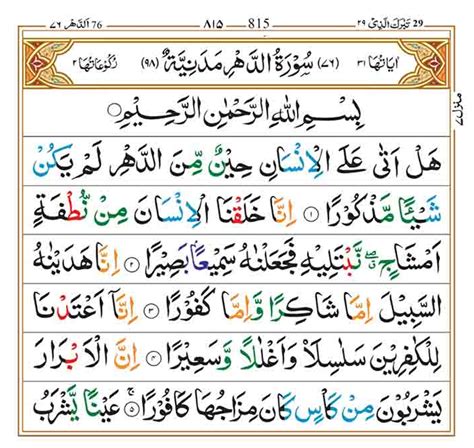 76 الدهر ٧٦ ٨١٥ 815 29 تبرك الذي ٢٩
اٰيَاتُهَا ٣١ (٧٦) سُوْرَةُ الدَّهْرِ مَدَنِيَّةٌ (٩٨) رُكُوْعَاتُهَا ٢
بِسْمِ اللّٰهِ الرَّحْمٰنِ الرَّحِيْمِ
هَلْ اَتٰى عَلَى الْاِنْسَانِ حِيْنٌ مِّنَ الدَّهْرِ لَمْ يَكُنْ
شَيْئًا مَّذْكُوْرًا ۝١ اِنَّا خَلَقْنَا الْاِنْسَانَ مِنْ نُّطْفَةٍ
اَمْشَاجٍ ۖ نَّبْتَلِيْهِ فَجَعَلْنٰهُ سَمِيْعًۢا بَصِيْرًا ۝٢ اِنَّا هَدَيْنٰهُ
السَّبِيْلَ اِمَّا شَاكِرًا وَّاِمَّا كَفُوْرًا ۝٣ اِنَّاۤ اَعْتَدْنَا
لِلْكٰفِرِيْنَ سَلٰسِلَا۟ وَاَغْلٰلًا وَّسَعِيْرًا ۝٤ اِنَّ الْاَبْرَارَ
يَشْرَبُوْنَ مِنْ كَاْسٍ كَانَ مِزَاجُهَا كَافُوْرًا ۝٥ عَيْنًا يَّشْرَبُ
منزل ٧